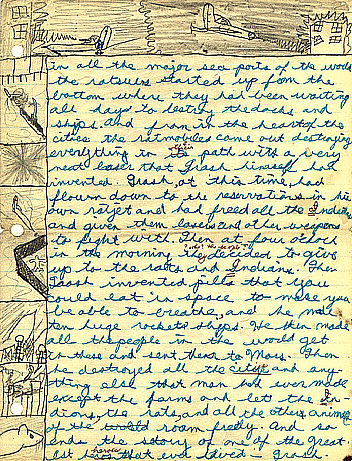 in all the major sea ports of the world
the ratsubs started up from the
bottom where they had been waiting
all day to destry the docks and
ships. And from in the heart of the
cities the ratmobiles came out destroying
everything in their path with a very
neat laser that Trash himself had
invented. Trash, at this time, had
flown down to the reservations in his
own ratjet and had freed all the Indians
and given them lasers and other weapons
to fight with. Then at four o'clock
in the morning they decided to give
up to the rats and Indians. Then
Trash invented pills that you
could eat in space to make you
be able to breathe, and he made
ten huge rockets ships. He then made
all the people in the world get
in these and sent them to Mars. Then
he destroyed all the cities and any-
thing else that man had ever made
except the farms and let the In-
dians, the rats, and all the other animals
of the world roam freely. And so
ends the story of one of the Great-
est heroes that ever lived - Trash.